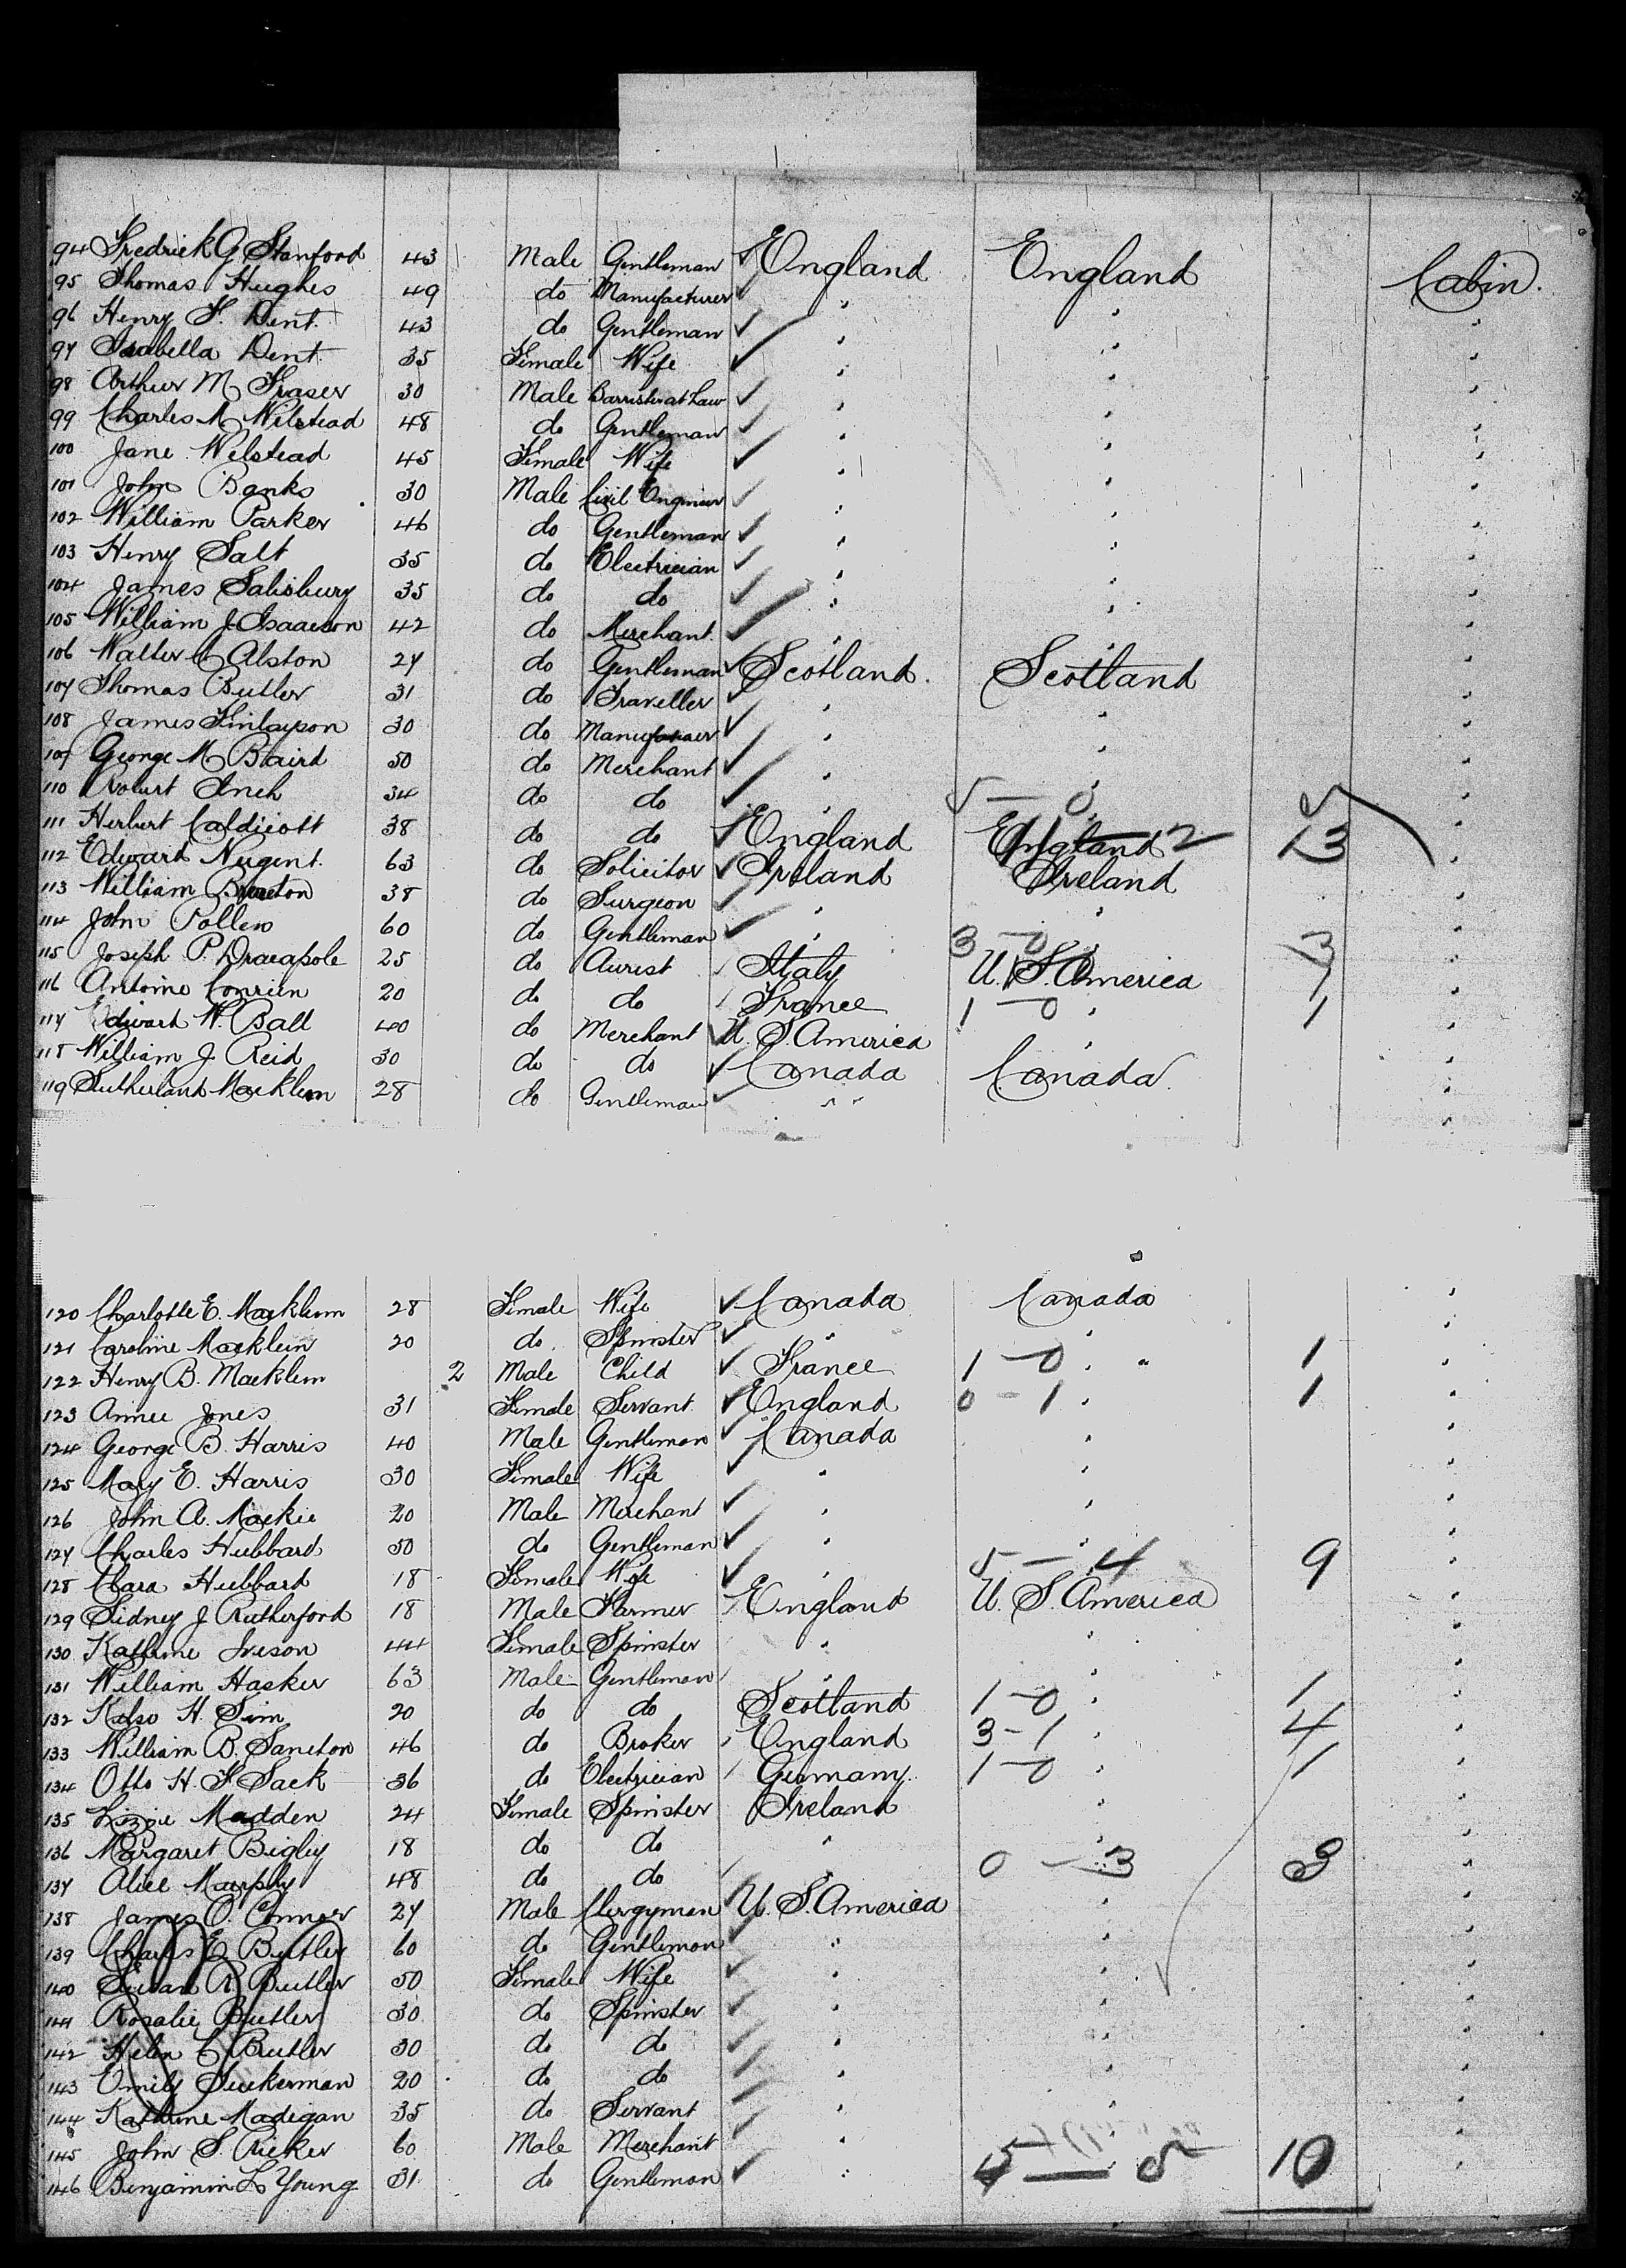 94 Fredrick G. Stanford 43 Male Gentleman England England Cabin.
95 Thomas Hughes 49 do Manufacturer " " "
96 Henry F. Dent. 43 do Gentleman " " "
97 Isabella Dent. 35 Female Wife " " "
98 Arthur M Fraser 30 Male Barrister at Law " " "
99 Charles M Welstead 48 do Gentleman " " "
100 Jane Welstead 45 Female Wife " " "
101 John Banks 30 Male Civil Engineer " " "
102 William Parker 46 do Gentleman " " "
103 Henry Salt 35 do Electrician " " "
104 James Salisbury 35 do do " " "
105 William J. Isaacson 42 do Merchant. " " "
106 Walter C Alston 27 do Gentleman Scotland. Scotland "
107 Thomas Butler 31 do Traveller " " "
108 James Finlayson 30 do " " "
109 George M Baird 50 do Merchant " " "
110 Robert Inch 34 do do " 5 — 0 " 5 "
111 Herbert Caldicott 38 do do England England 2 13 "
112 Edward Nugent. 63 do Solicitor Ireland Ireland "
113 William 38 do Surgeon " " "
114 John Pollen 60 do Gentleman " 3 — 0 " 3 "
115 Joseph P. Dracapole 25 do Aurist Italy U. S. America 1 "
116 Antoine 20 do do France 1 — 0 " 1 "
117 Edward W. Ball 40 do Merchant U. S. America " "
118 William J. Reid 30 do do Canada Canada. "
119 Sutherland Macklem 28 do Gentleman " " "
120 Charlotte E. Macklem 28 Female Wife Canada Canada "
121 Caroline Macklem 20 do. Spinster " " "
122 Henry B. Macklem 2 Male Child France 1 — 0 " " 1 "
123 Annie Jones 31 Female Servant. England 0 - 1 " 1 "
124 George B. Harris 40 Male Gentleman Canada " "
125 Mary E. Harris 30 Female Wife " " "
126 John A. Mackie 20 Male Merchant " " "
127 Charles Hubbard 50 do Gentleman " " "
128 Clara Hubbard 18 Female Wife " 5 — 4 9 "
129 Sidney J Rutherford 18 Male Farmer England U. S. America "
130 Kathrine Iveson 44 Female Spinster " " "
131 William Hasker 63 Male Gentleman " " "
132 Kelso H. Sim 20 do do Scotland 1 - 0 " 1 "
133 William B. Sancton 46 do Broker England 3 - 1 " 4 "
134 Otto H. F. Sack 36 do Electrician Germany. 1 - 0 " 1 "
135 Lizzie Madden 24 Female Spinster Ireland " "
136 Margaret Bigley 18 do do " " "
137 Alice Murphy 48 do do " 0 — 3 3 "
138 James O. Connor 27 Male Clergyman U. S. America " "
139 Charles E. Butler 60 do Gentleman " " "
140 Susan R. Butler 50 Female Wife " " "
141 Rosalie Butler 30 do Spinster " " "
142 Helen C Butler 30 do do " " "
143 Emily Tuckerman 20 do do " " "
144 Kathrine Madigan 35 do Servant " " "
145 John S. Ricker 60 Male Merchant " " "
146 Benjamin L. Young 31 do Gentleman " 5 — 5 10 "